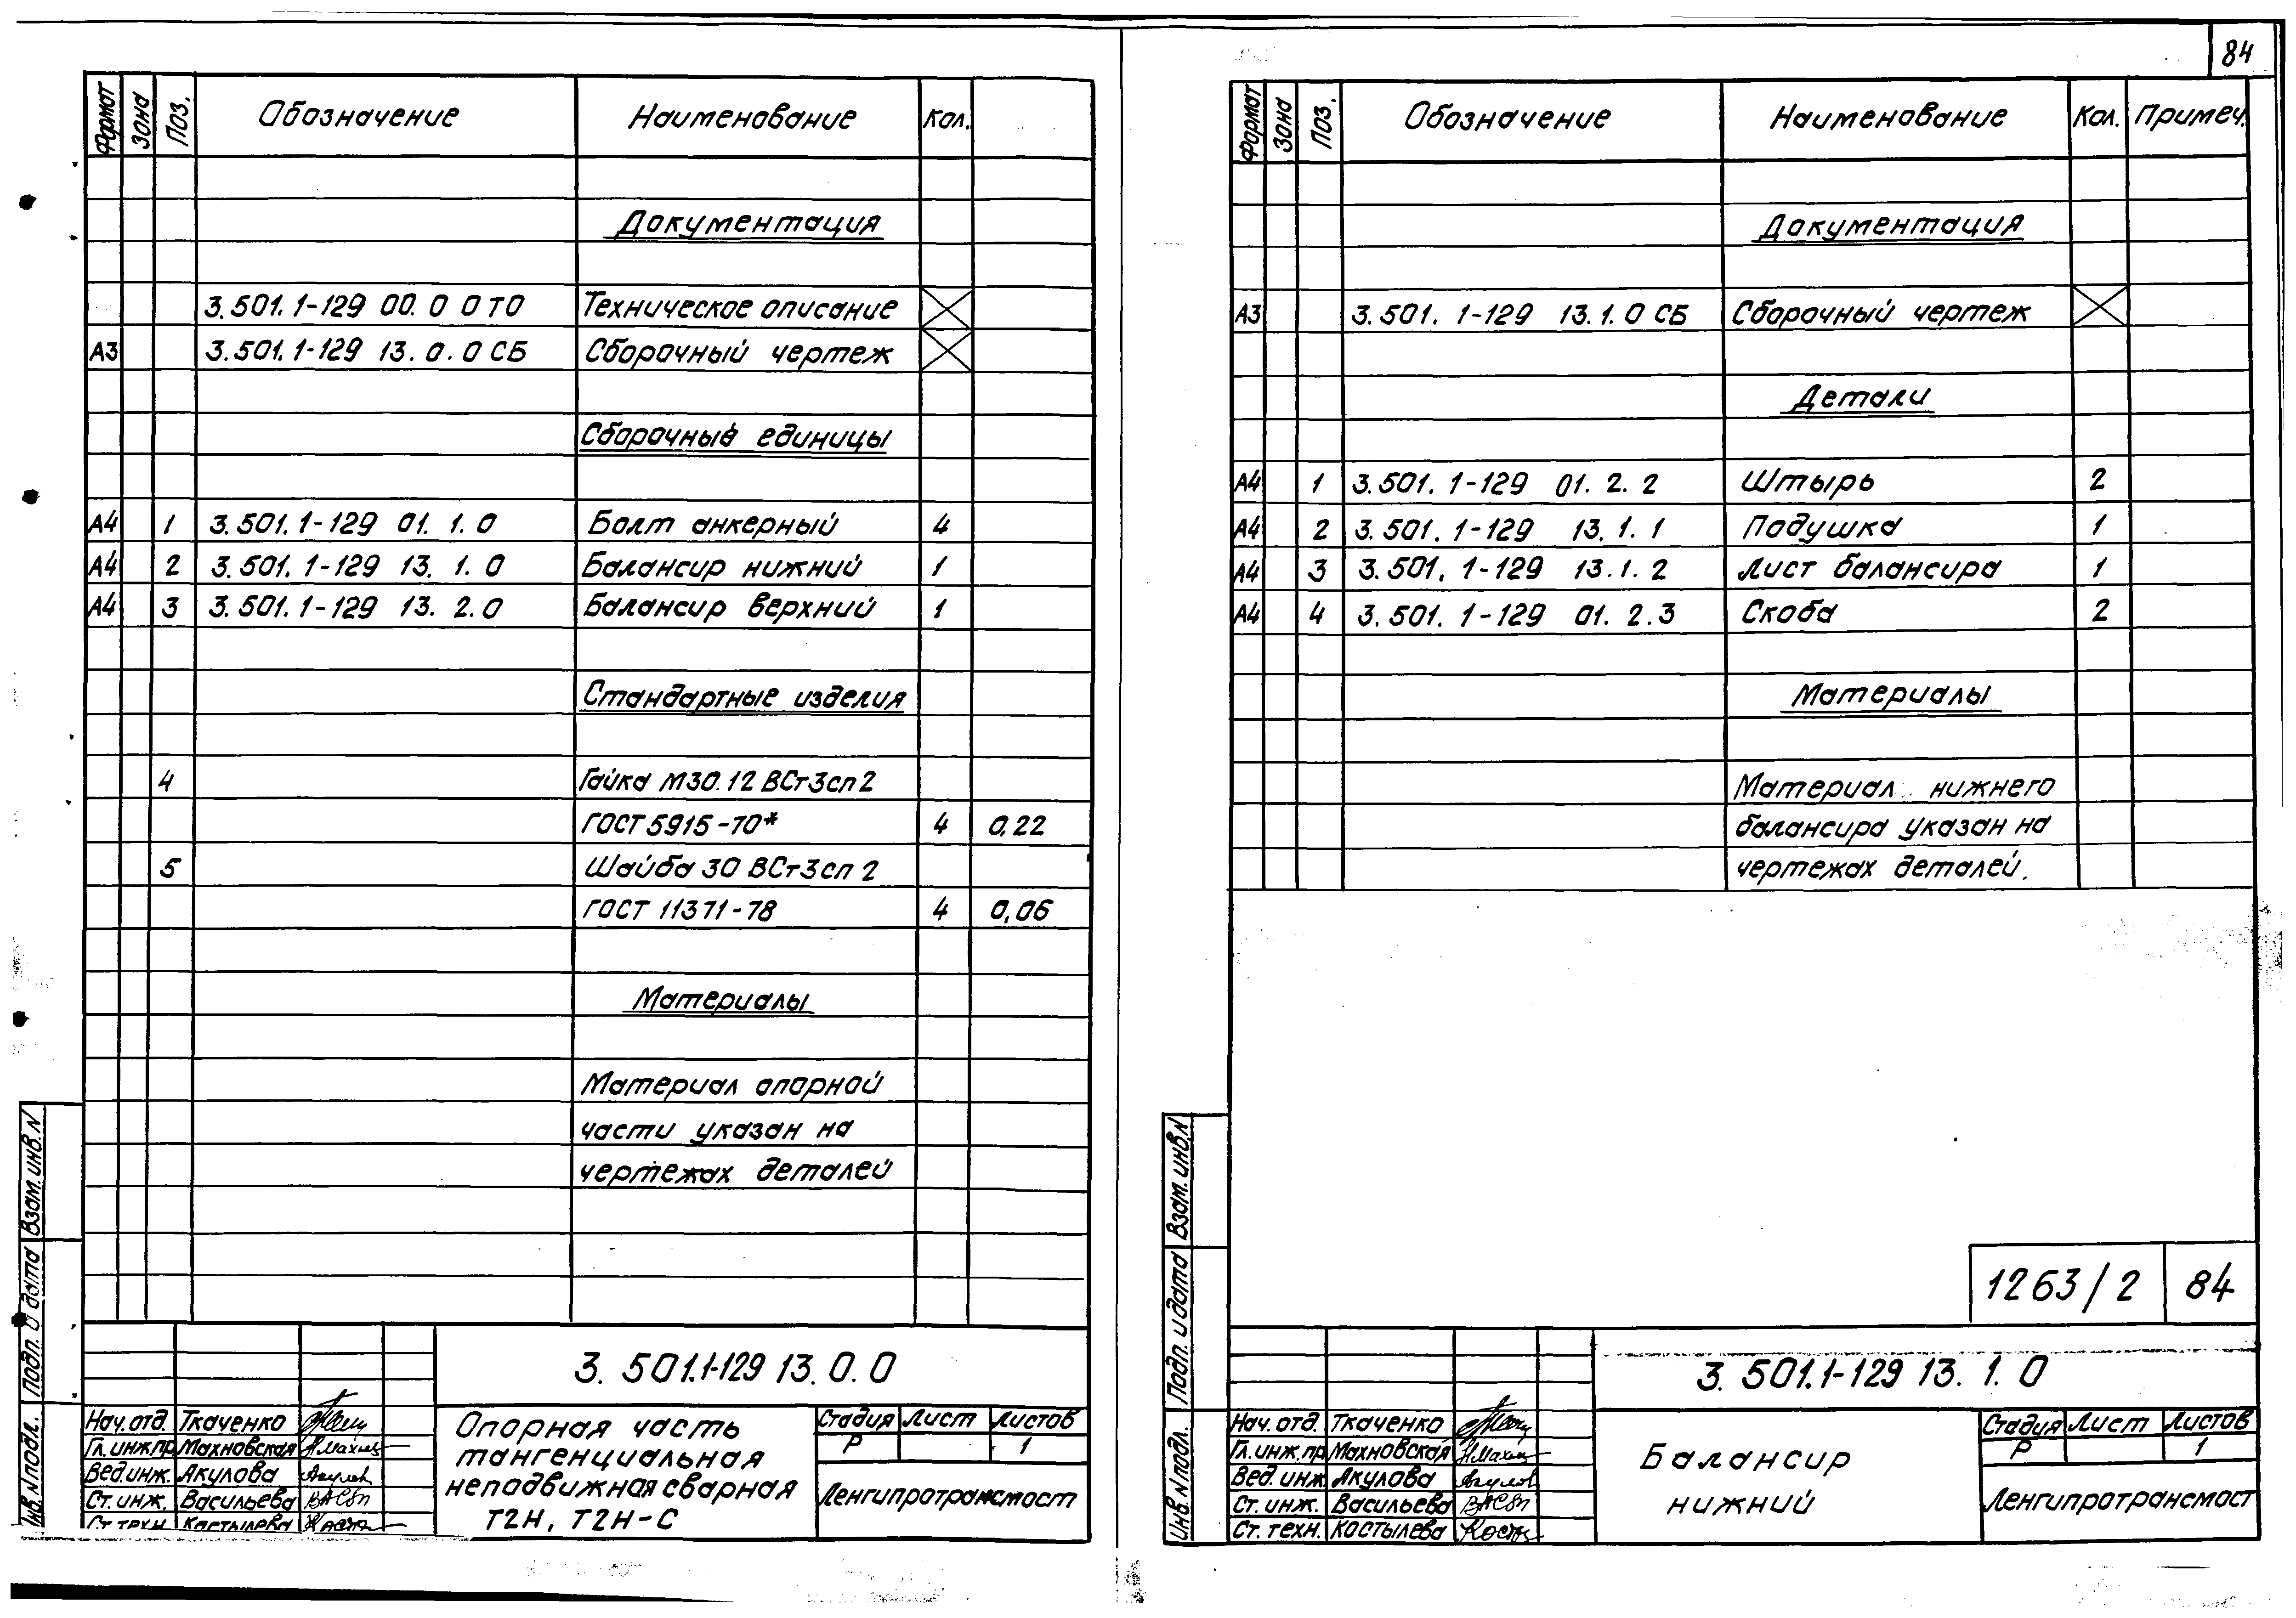 84
Формат Зона Поз. Обозначение Наименование Кол.
Документация
3.501.1-129 00.0 0 ТО Техническое описание
А3 3.501.1-129 13.0.0 СБ Сборочный чертеж
Сборочные единицы
А4 1 3.501.1-129 01.1.0 Болт анкерный 4
А4 2 3.501.1-129 13.1.0 Балансир нижний 1
А4 3 3.501.1-129 13.2.0 Балансир верхний 1
Стандартные изделия
4 Гайка М30.12 ВСт3сп2
ГОСТ 5915-70* 4 0,22
5 Шайба 30 ВСт3сп2
ГОСТ 11371-78 4 0,06
Материалы
Материал опорной
части указан на
чертежах деталей
Взам. инв. N
Подп. и дата
Инв. N подл.
3.501.1-129 13.0.0
Нач. отд. Ткаченко
Гл. инж. пр. Махновская
Вед. инж. Акулова
Ст. инж. Васильева
Ст. техн. Костылева
Опорная часть
тангенциальная
неподвижная сварная
Т2Н, Т2Н-С
Стадия Лист Листов
Р 1
Ленгипротрансмост
Формат Зона Поз. Обозначение Наименование Кол. Примеч.
Документация
А3 3.501.1-129 13.1.0 СБ Сборочный чертеж
Детали
А4 1 3.501.1-129 01.2.2 Штырь 2
А4 2 3.501.1-129 13.1.1 Подушка 1
А4 3 3.501.1-129 13.1.2 Лист балансира 1
А4 4 3.501.1-129 01.2.3 Скоба 2
Материалы
Материал нижнего
балансира указан на
чертежах деталей.
1263/2 84
Взам. инв. N
Подп. и дата
Инв. N подл.
3.501.1-129 13.1.0
Нач. отд. Ткаченко
Гл. инж. пр. Махновская
Вед. инж. Акулова
Ст. инж. Васильева
Ст. техн. Костылева
Балансир
нижний
Стадия Лист Листов
Р 1
Ленгипротрансмост